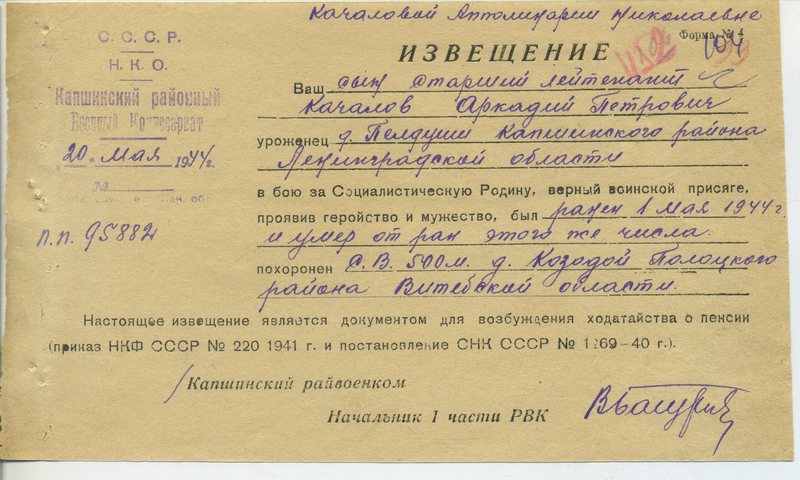 Качаловой Апполинарии Николаевне
Форма № 4
104
С. С. С. Р.
Н. К. О.
Капшинский районный
Военный Комиссариат
20. мая 1944 г.
№
п.п. 95882
ИЗВЕЩЕНИЕ
Ваш сын старший лейтенант
Качалов Аркадий Петрович
уроженец д. Пелдуши Капшинского района
Ленинградской области
в бою за Социалистическую Родину, верный воинской присяге,
проявив геройство и мужество, был ранен 1 мая 1944 г.
и умер от ран этого же числа.
похоронен С.В. 500 м. д. Козодой Полоцкого
района Витебской области.
Настоящее извещение является документом для возбуждения ходатайства о пенсии
(приказ НКФ СССР № 220 1941 г. и постановление СНК СССР № 1269–40 г.).
Капшинский райвоенком
Начальник 1 части РВК